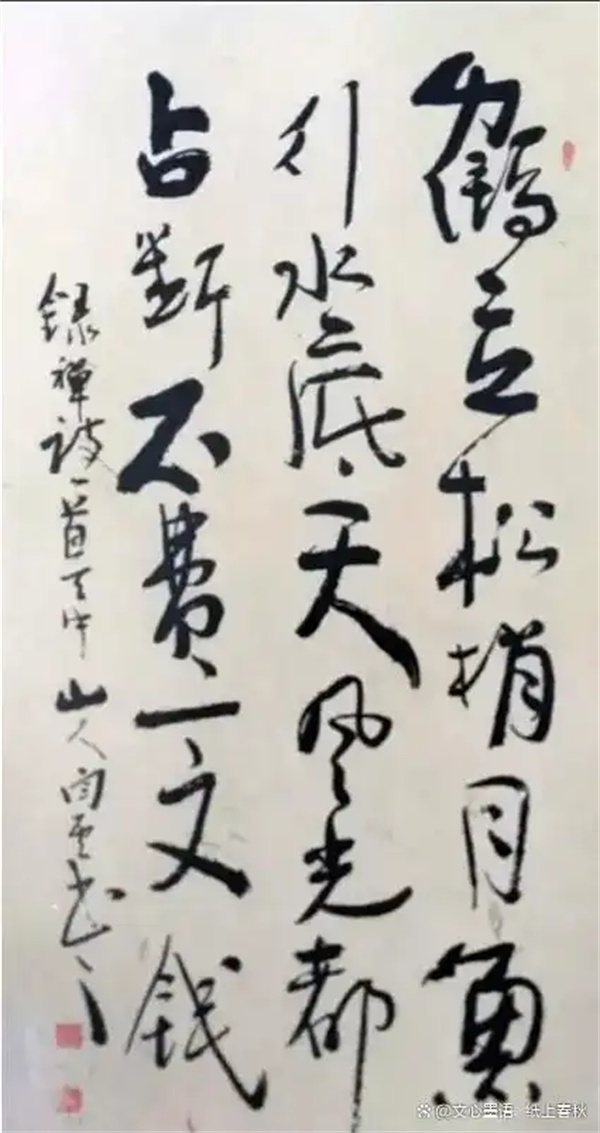 鶴立松梢月魚
行水底天風光都
占斷不費一文錢
錄禪詩一首天中山人向雲书
@文心墨语 纸上春秋